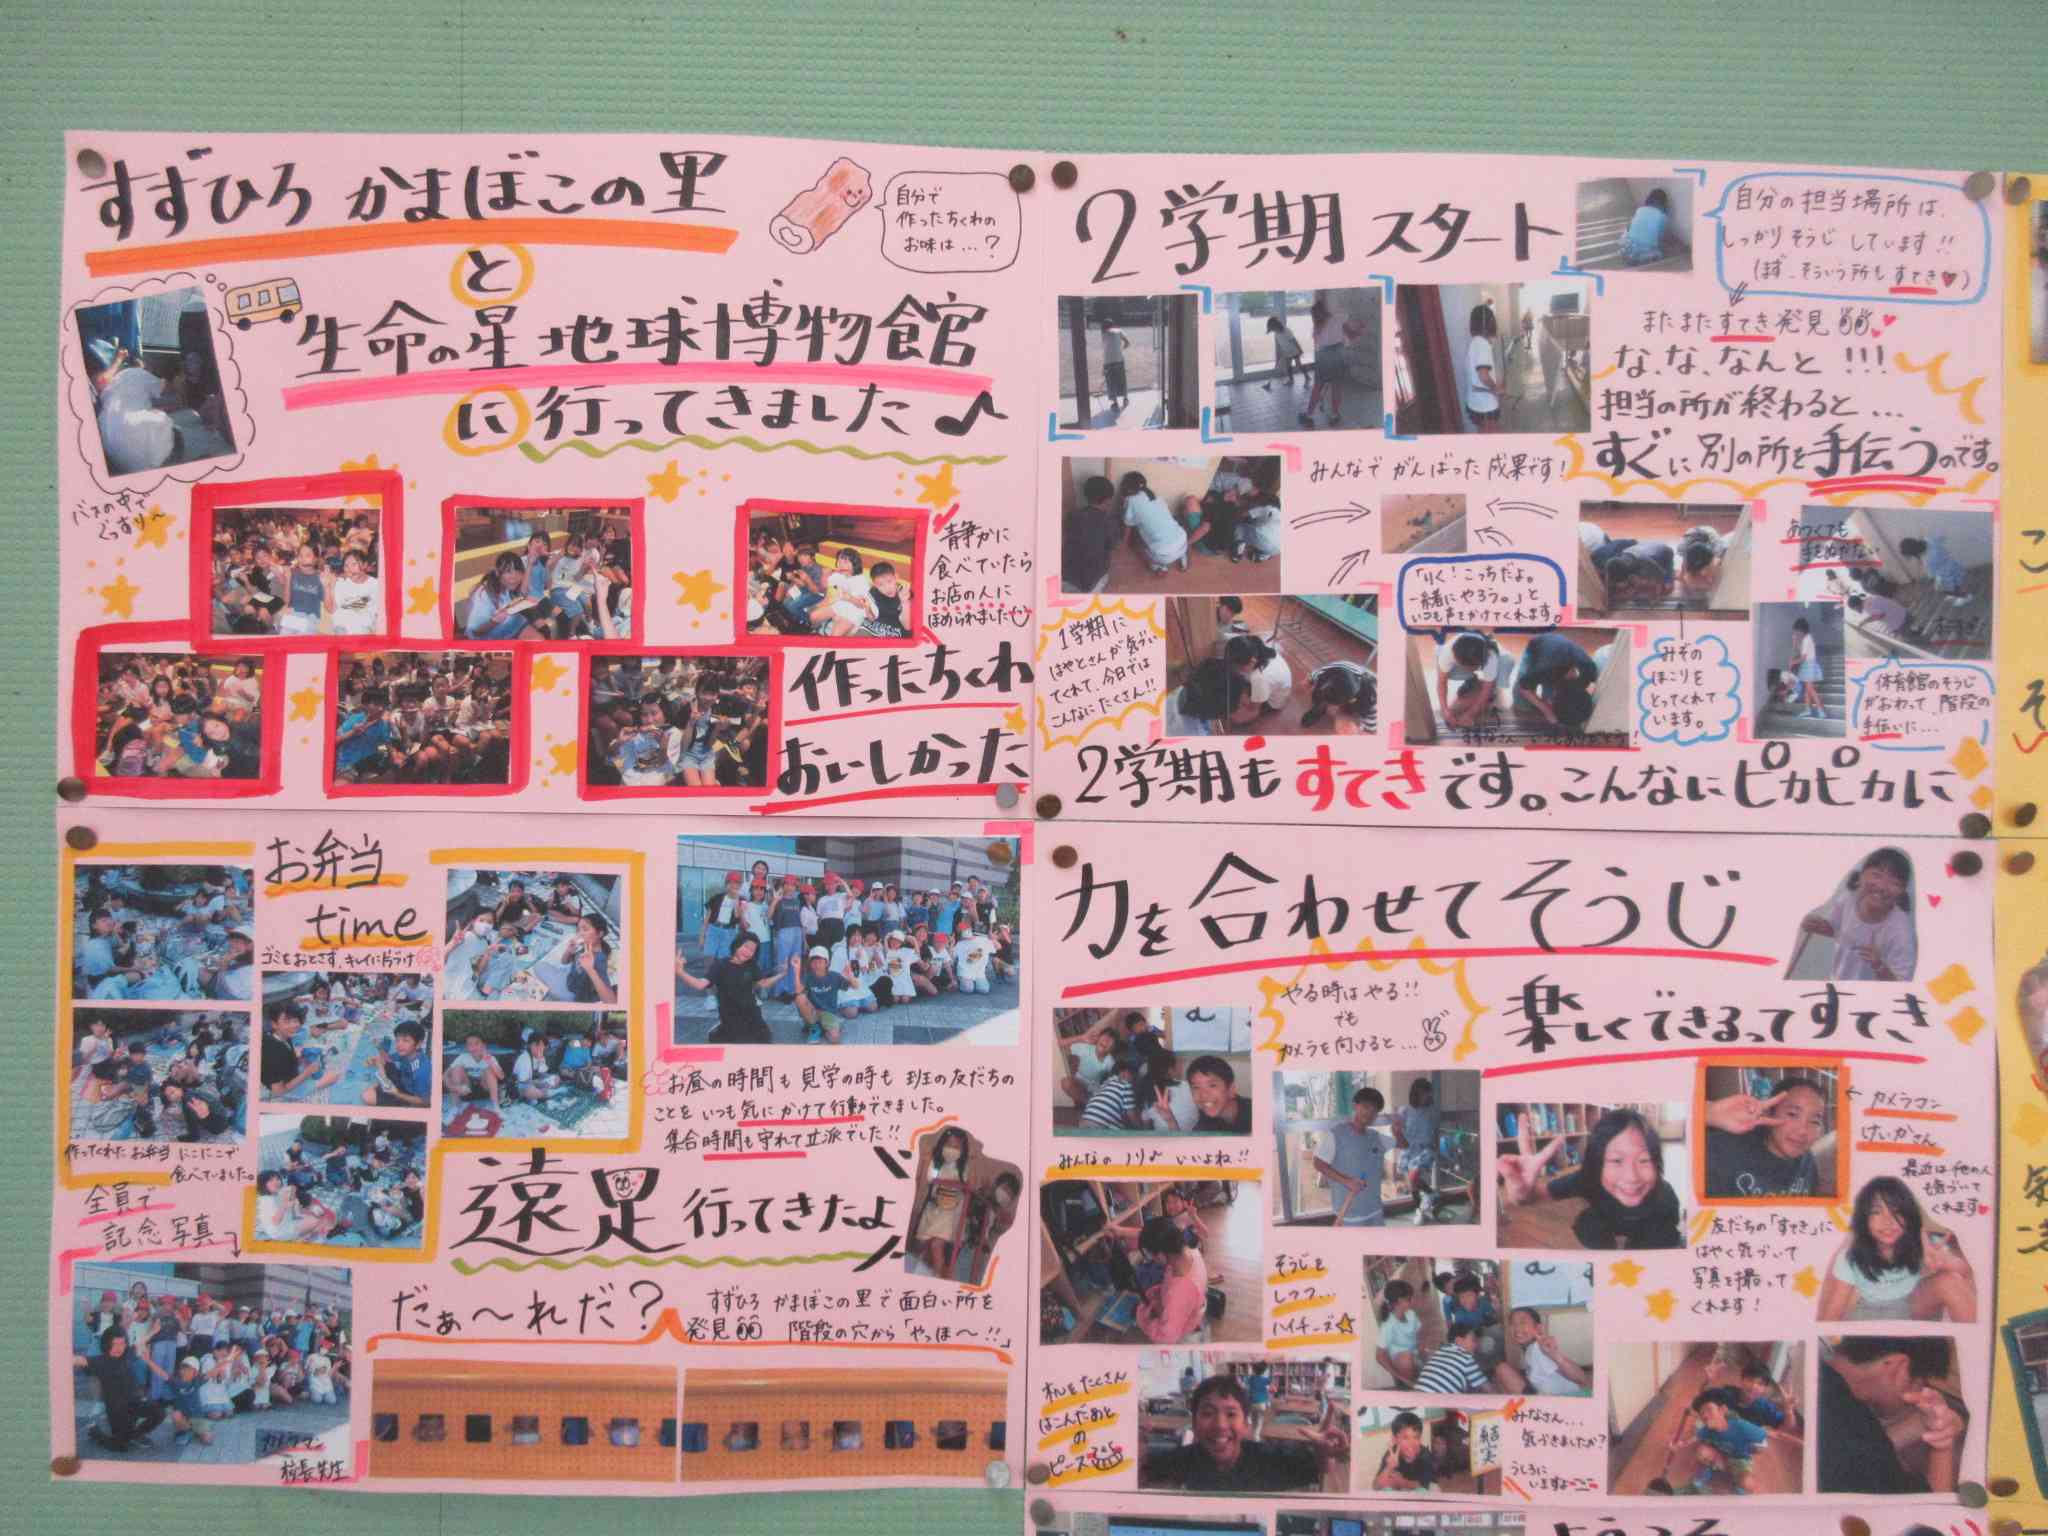 すずひろ かまぼこの里
と
生命の星 地球博物館
に 行ってきました♪
自分で
作ったちくわの
お味は…?
バスの中で
ぐっすり〜
静かに
食べていたら
お店の人に
ほめられました
作ったちくわ
おいしかった
2学期スタート
自分の担当場所は、
しっかりそうじしています!!
(まず、そういう所もすてき♥)
またまたすてき発見
な、な、なんと!!!
担当の所が終わると…
すぐに別の所を手伝うのです。
みんなでがんばった成果です!
「りく!こっちだよ。
一緒にやろう。」と
いつも声をかけてくれます。
1学期に
はやとさんが気づい
てくれて、今日では
こんなにたくさん!!
みぞの
ほこりを
とってくれて
います。
あつくても
手をぬかない
体育館のそうじ
がおわって、階段の
手伝いに…
2学期もすてきです。こんなにピカピカに
お弁当
time
ゴミをおとさず、キレイに片づけ
作ってくれたお弁当 にこにこで
食べていました。
全員で
記念写真
カメラマン
校長先生
お昼の時間も見学の時も 班の友だちの
ことを いつも気にかけて行動できました。
集合時間も守れて立派でした!!
遠足 行ってきたよ
だぁ〜れだ?
すずひろ かまぼこの里で面白い所を
発見 階段の穴から「やっほ〜!!」
力を合わせてそうじ
楽しくできるってすてき
やる時はやる!!
でも
カメラを向けると…
みんなのノリ♪ いいよね!!
カメラマン
けいかさん
最近は他の人
も気づいて
くれます
友だちの「すてき」に
はやく気づいて
写真を撮って
くれます!
そうじを
しつつ…
ハイチーズ☆
机をたくさん
はこんだあと
の
ピース
結実
みなさん…
気づきましたか?
うしろに
いますよ
ようこそ